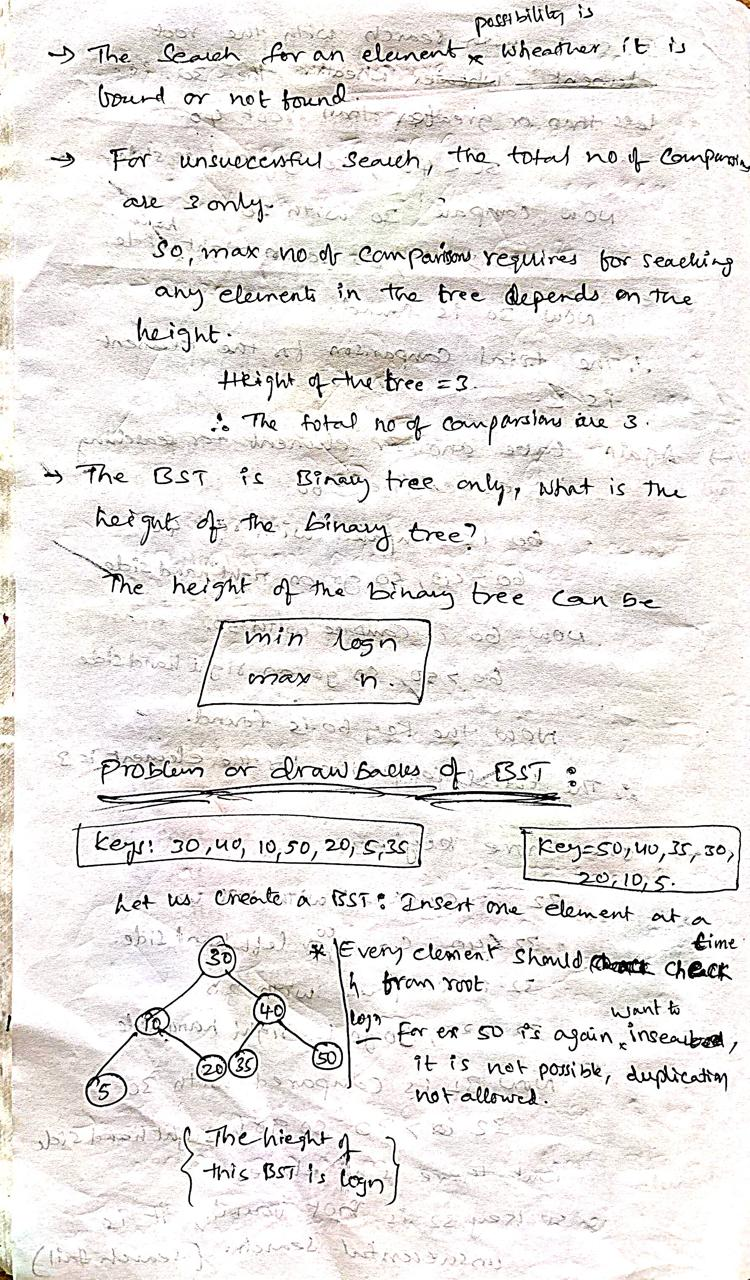 possibility is
→ The Search for an element × wheather it is
bound or not found.
→ For unsuccessful search, the total no of comparsion
are 3 only.
So, max no of comparisons requires for seaching
any elements in the tree depends on the
height.
Height of the tree = 3.
∴ The total no of comparsions are 3.
→ The BST is Binary tree only, what is the
height of the binary tree?
The height of the binary tree can be
min logn
max n.
Problem or drawbacks of BST :
Keys: 30, 40, 10, 50, 20, 5, 35
Key=50, 40, 35, 30,
20, 10, 5.
Let us create a BST: Insert one element at a
time
30
10
40
5
20
35
50
* Every element should check
h from root.
logn
want to
For ex 50 is again ×
it is not possible, duplication
not allowed.
{ The hieght of
this BST is logn }